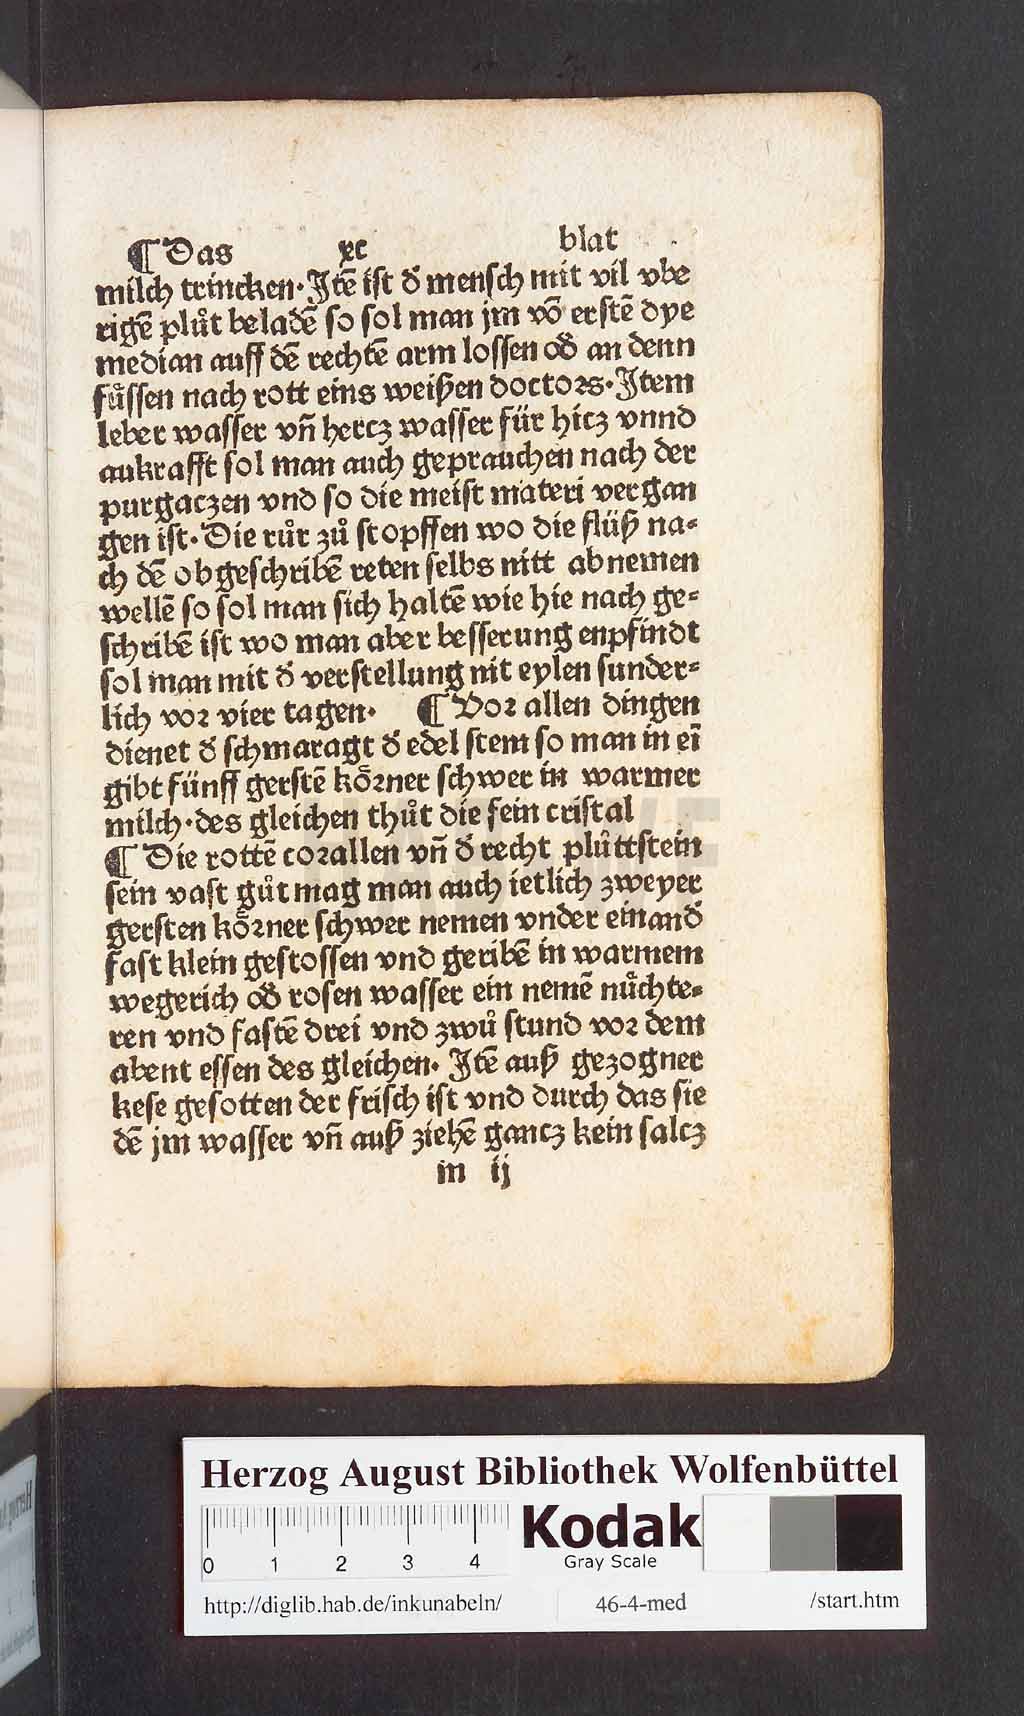 ¶ Das xc blat
milch trincken. Jtē ist d̕ mensch mit vil vbe
rigē plůt beladē so sol man jm vō erstē dye
median auff dē rechtē arm lossen od̕ an denn
fůssen nach rott eins weißen doctors. Jtem
leber wasser vñ hercz wasser für hicz vnnd
aukrafft sol man auch geprauchen nach der
purgaczen vnd so die meist materi vergan
gen ist. Die růr zů stopffen wo die flüß na-
ch dē obgeschribē reten selbs nitt abnemen
wellē so sol man sich haltē wie hie nach ge-
schribē ist wo man aber besserung enpfindt
sol man mit d̕ verstellung nit eylen sunder-
lich vor vier tagen. ¶ Vor allen dingen
dienet d̕ schmaragt d̕ edel stem so man in eī
gibt fünff gerstē koͤrner schwer in warmer
milch. des gleichen thůt die fein cristal
¶ Die rottē corallen vñ d̕ recht plůttstein
sein vast gůt mag man auch ietlich zweyer
gersten koͤrner schwer nemen vnder einand̕
fast klein gestossen vnd geribē in warmem
wegerich od̕ rosen wasser ein nemē nůchte-
ren vnd fastē drei vnd zwů stund vor dem
abent essen des gleichen. Jtē auß gezogner
kese gesotten der frisch ist vnd durch das sie
dē jm wasser vñ auß ziehē gancz kein salcz
m ij
HAB WF
Herzog August Bibliothek Wolfenbüttel
0 1 2 3 4
Kodak
Gray Scale
http://diglib.hab.de/inkunabeln/ 46-4-med /start.htm